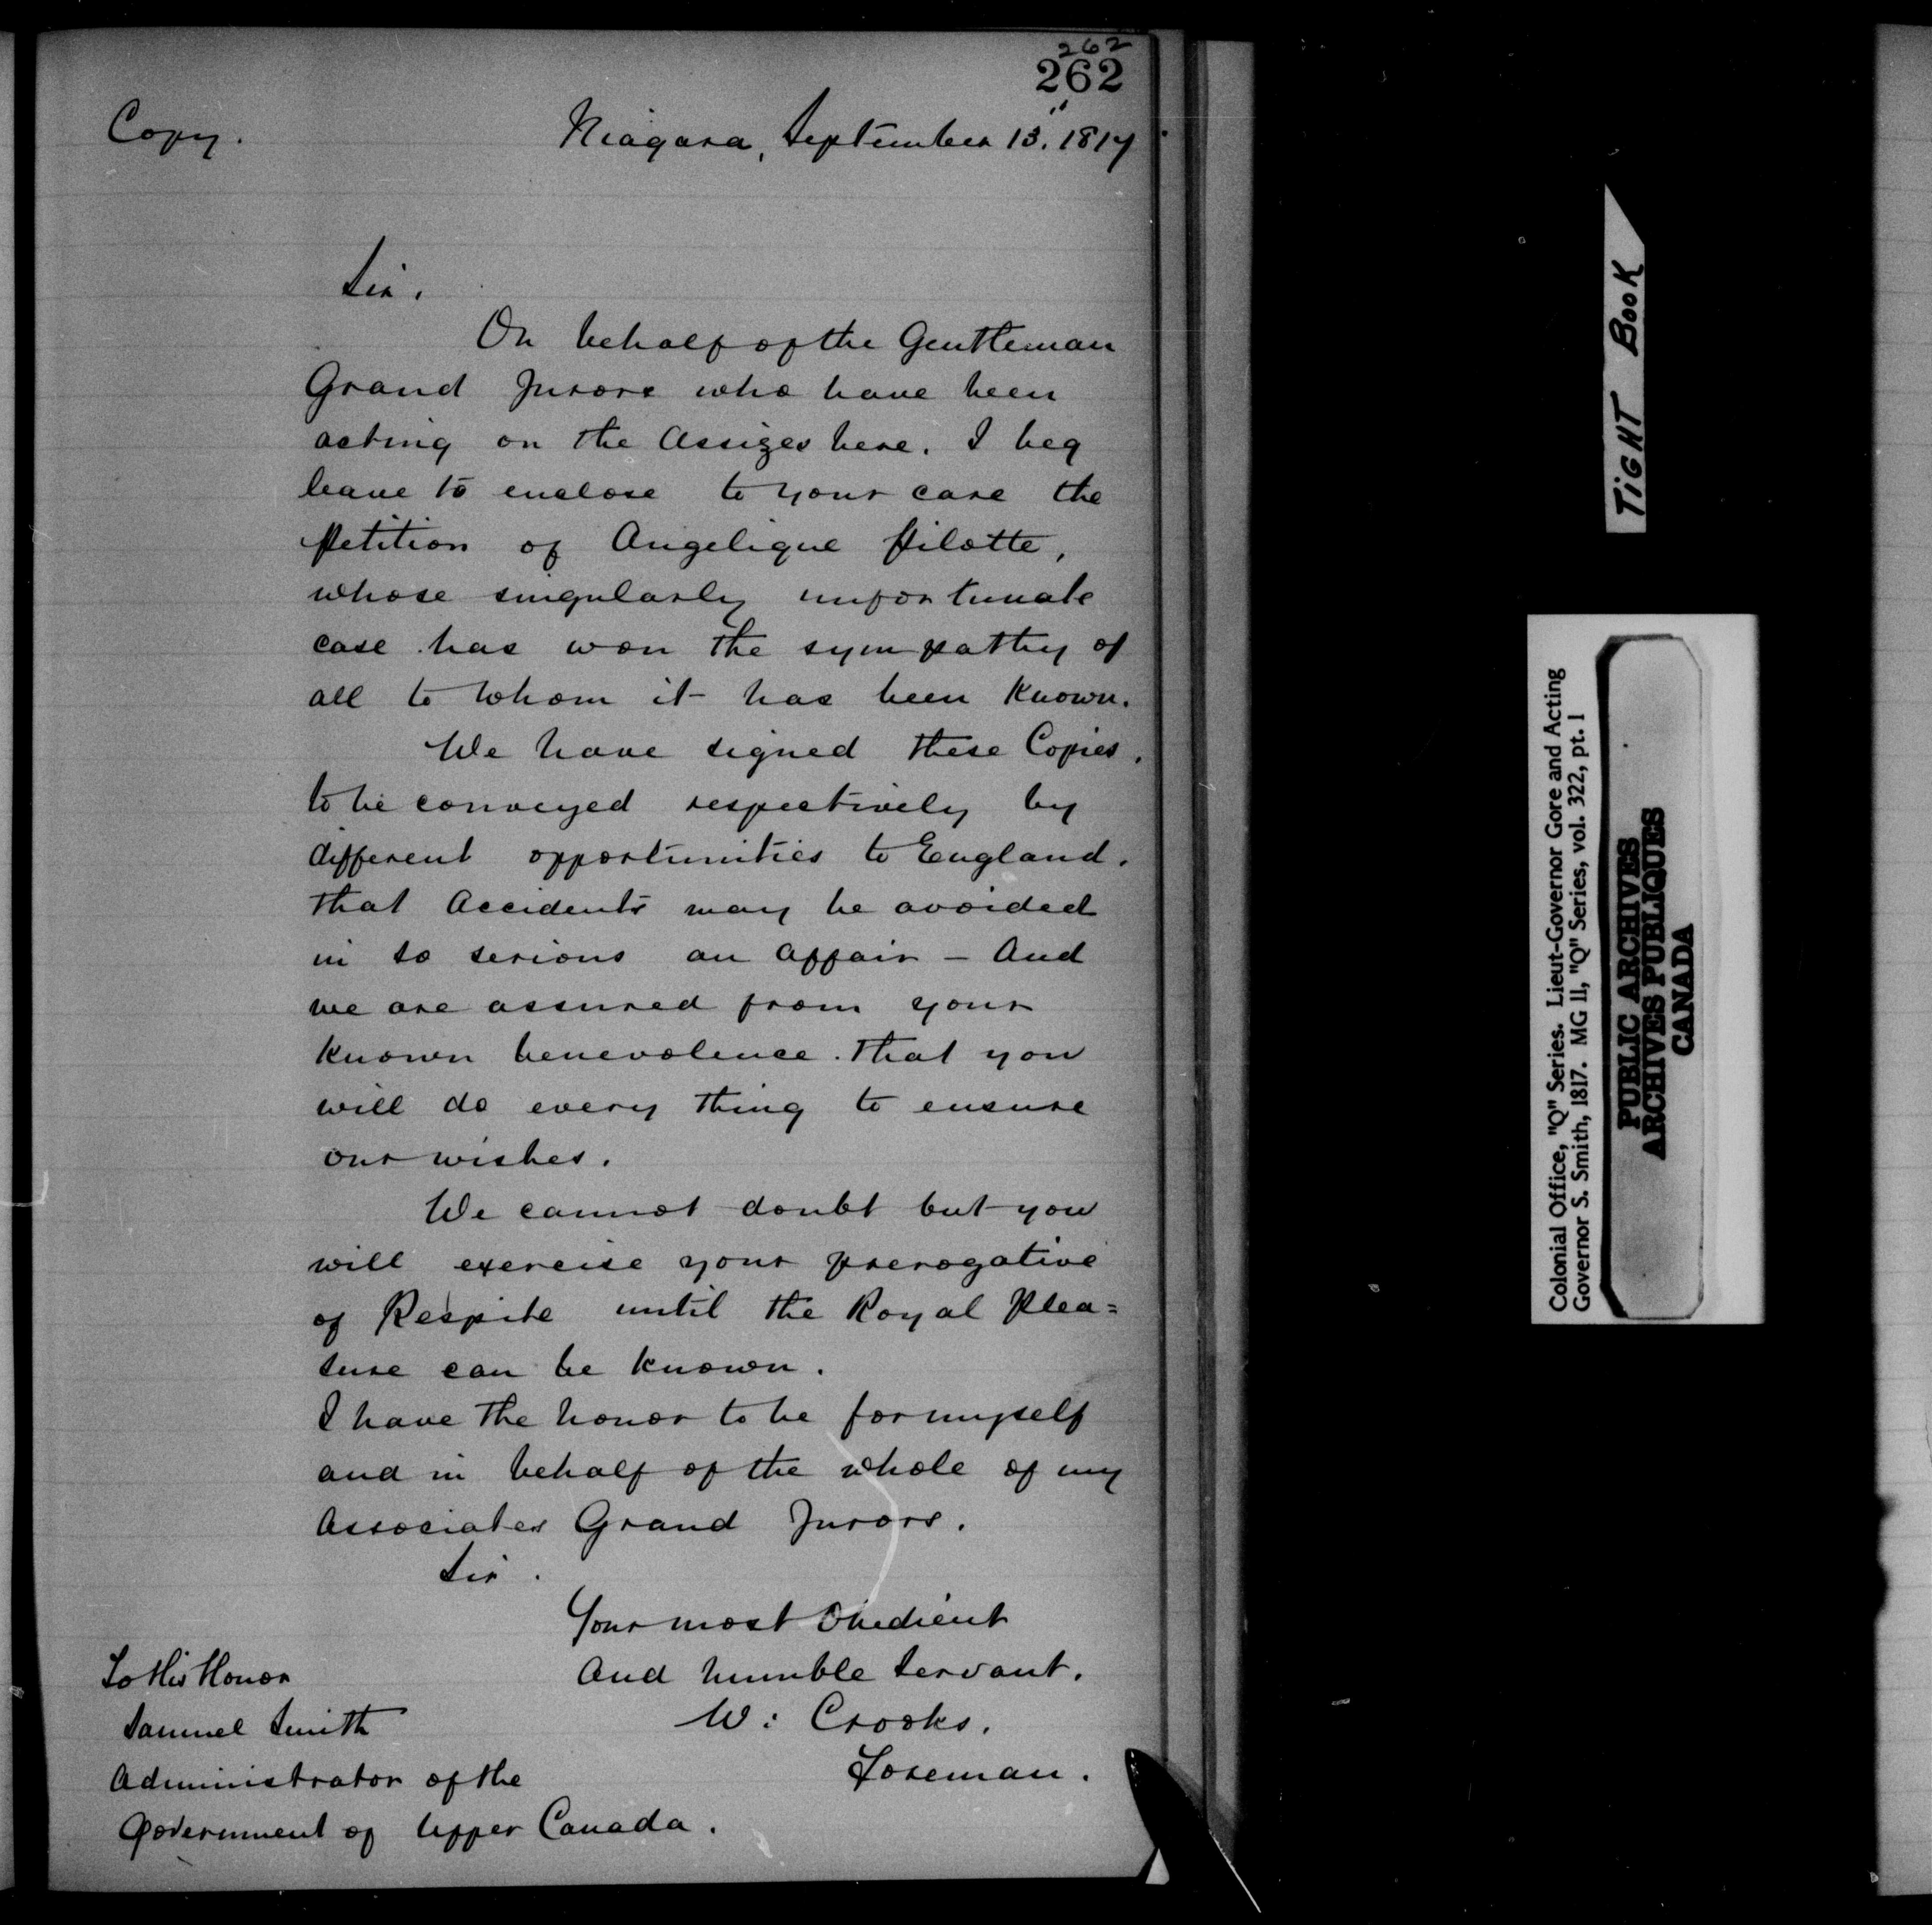 262
262
Copy.
Niagara, September 13." 1817
Sir.
On behalf of the Gentleman
Grand Jurors who have been
acting on the Assizes here. I beg
leave to enclose to your care the
Petition of Angelique Pilotte,
whose singularly unfortunate
case has won the sympathy of
all to whom it has been known.
We have signed these Copies,
to be conveyed respectively by
different opportunities to England.
that Accidents may be avoided
in so serious an affair - And
we are assured from your
known benevolence. that you
will do every thing to ensure
our wishes.
We cannot doubt but you
will exercise your prerogative
of Respite until the Royal Plea=
sure can be known.
I have the honor to be for myself
and in behalf of the whole of my
Associates Grand Jurors.
Sir.
Your most Obedient
And humble Servant.
W: Crooks.
Foreman.
To His Honor
Samuel Smith
Administrator of the
Government of Upper Canada.
TIGHT BOOK
Colonial Office, "Q" Series. Lieut-Governor Gore and Acting
Governor S. Smith, 1817. MG 11, "Q" Series, vol. 322, pt. 1
PUBLIC ARCHIVES
ARCHIVES PUBLIQUES
CANADA